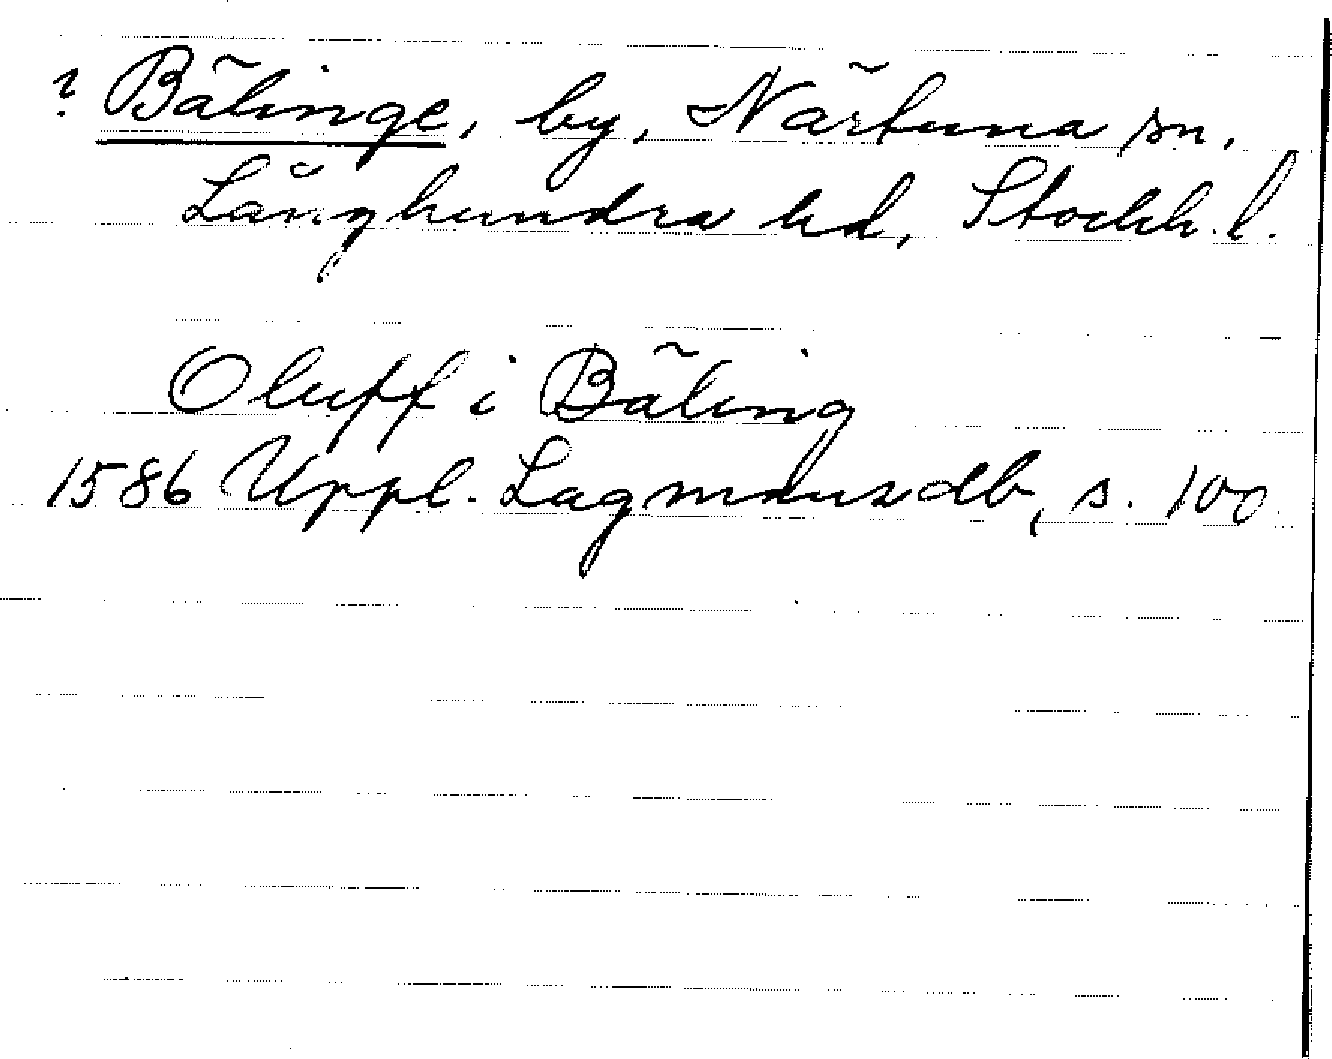 ? Bälinge, by, Närtuna sn,
Långhundra hd, Stockh. l.
Oluff i Bäling
1586 Uppl. Lagmansdb, s. 100